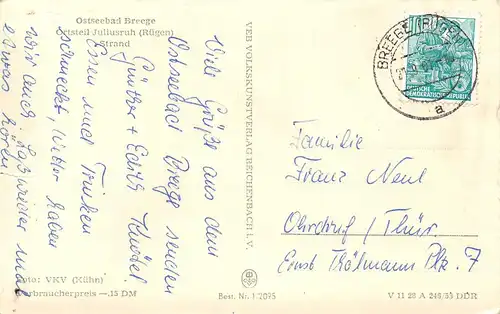 Ostseebad Breege
Ortsteil Juliusruh (Rügen)
Strand
Viele Grüße aus dem
Ostseebad Breege senden
Günther + Edith
Essen und Trinken
schmeckt, Wetter haben
wir auch. Laßt wieder mal
etwas hören!
Foto: VKV (Kühn)
Verbraucherpreis —.15 DM
VEB VOLKSKUNSTVERLAG REICHENBACH I. V.
Best. Nr. 1/2095
BREEGE (RÜGEN)
a
DEUTSCHE
DEMOKRATISCHE REPUBLIK
Familie
Franz
Ohrdruf / Thür.
Ernst Thälmann Plz. 7
V 11 28 A 246/53 DDR